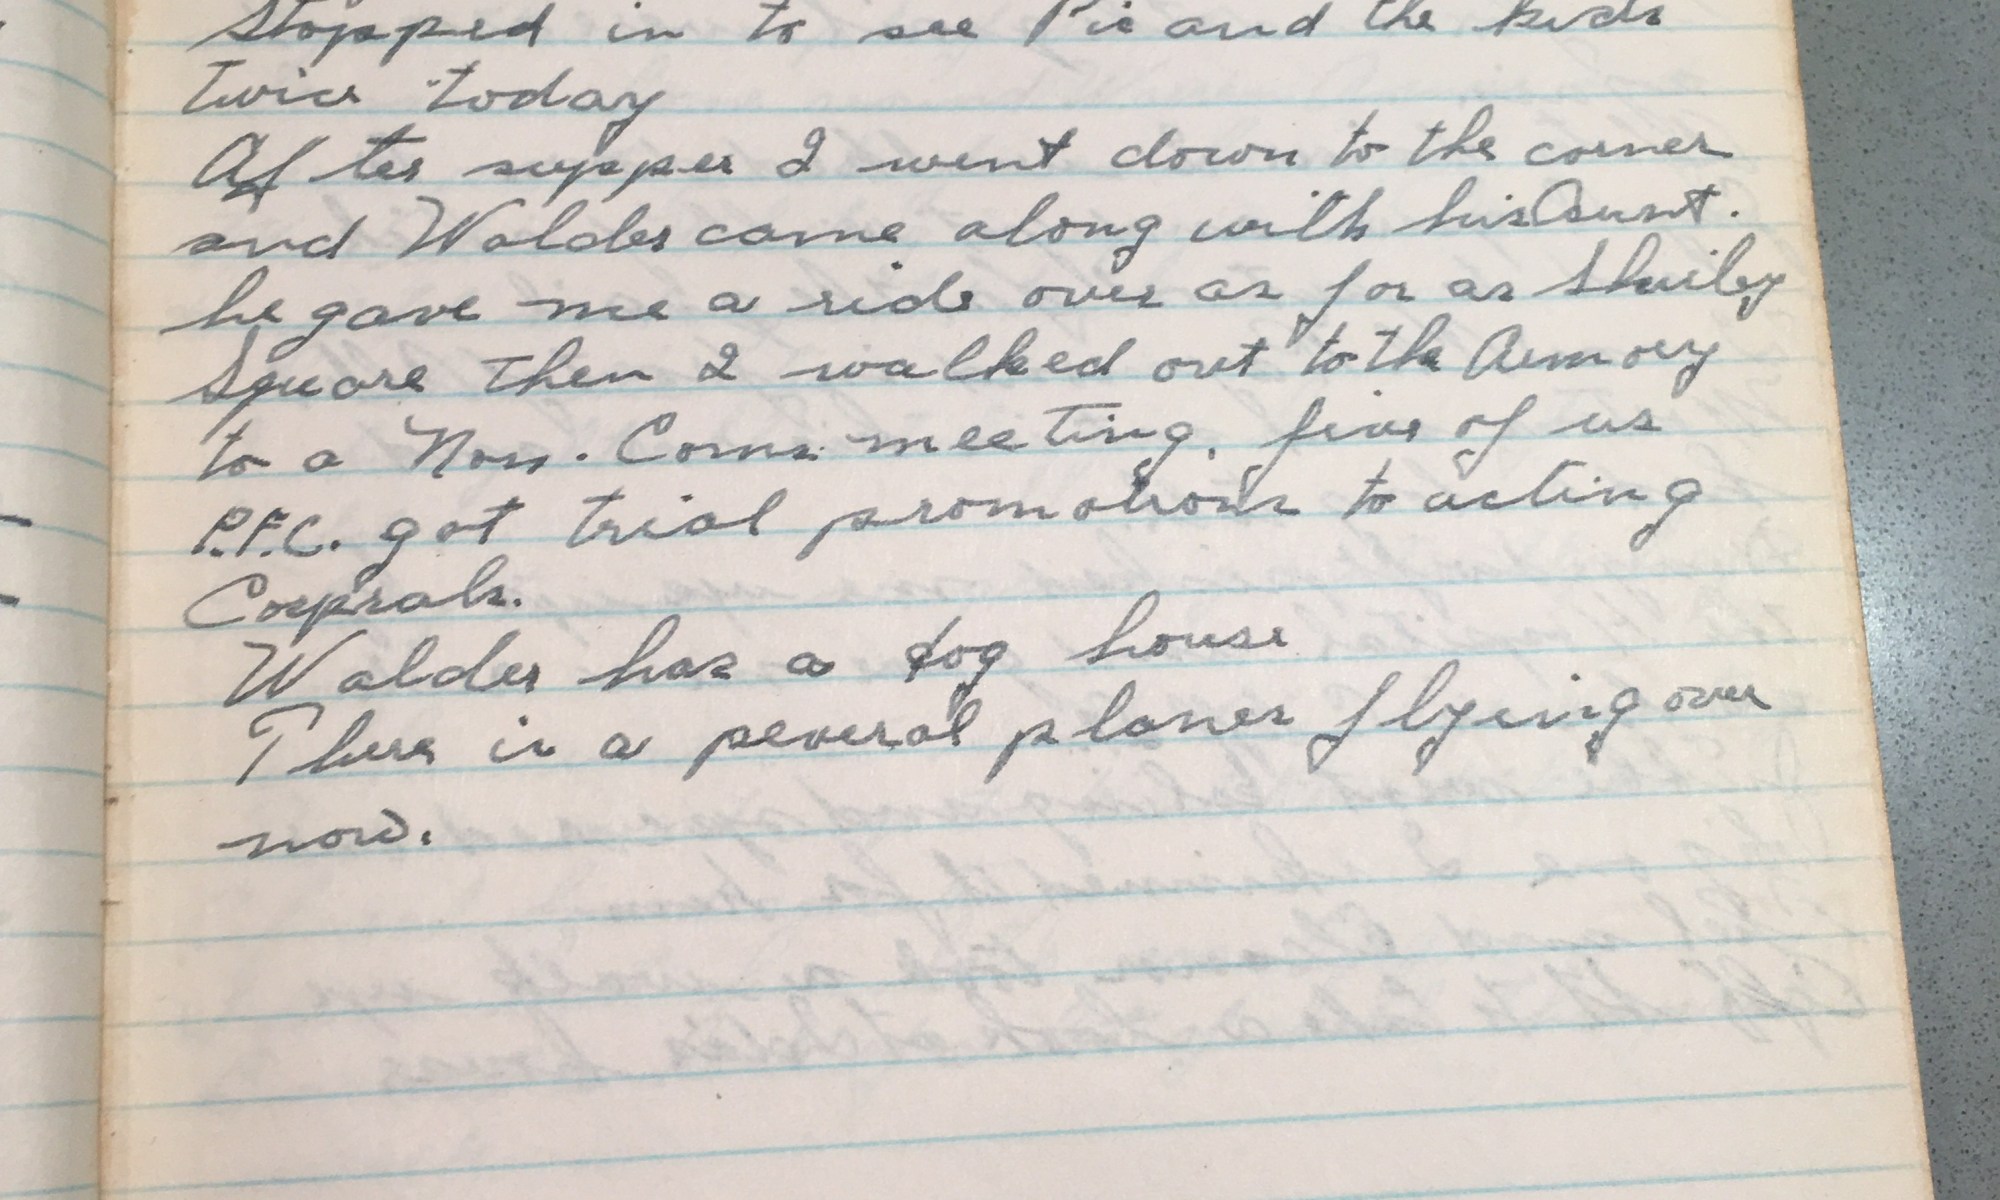 Stopped in to see Pie and the kids
twice today
After supper I went down to the corner
and Walder came along with his Aunt.
he gave me a ride over as far as Shirley
Square then I walked out to the Armory
to a Non. Com. meeting. five of us
P.F.C. got trial promotions to acting
Corprals.
Walder has a dog house
There is a several planes flying over
now.